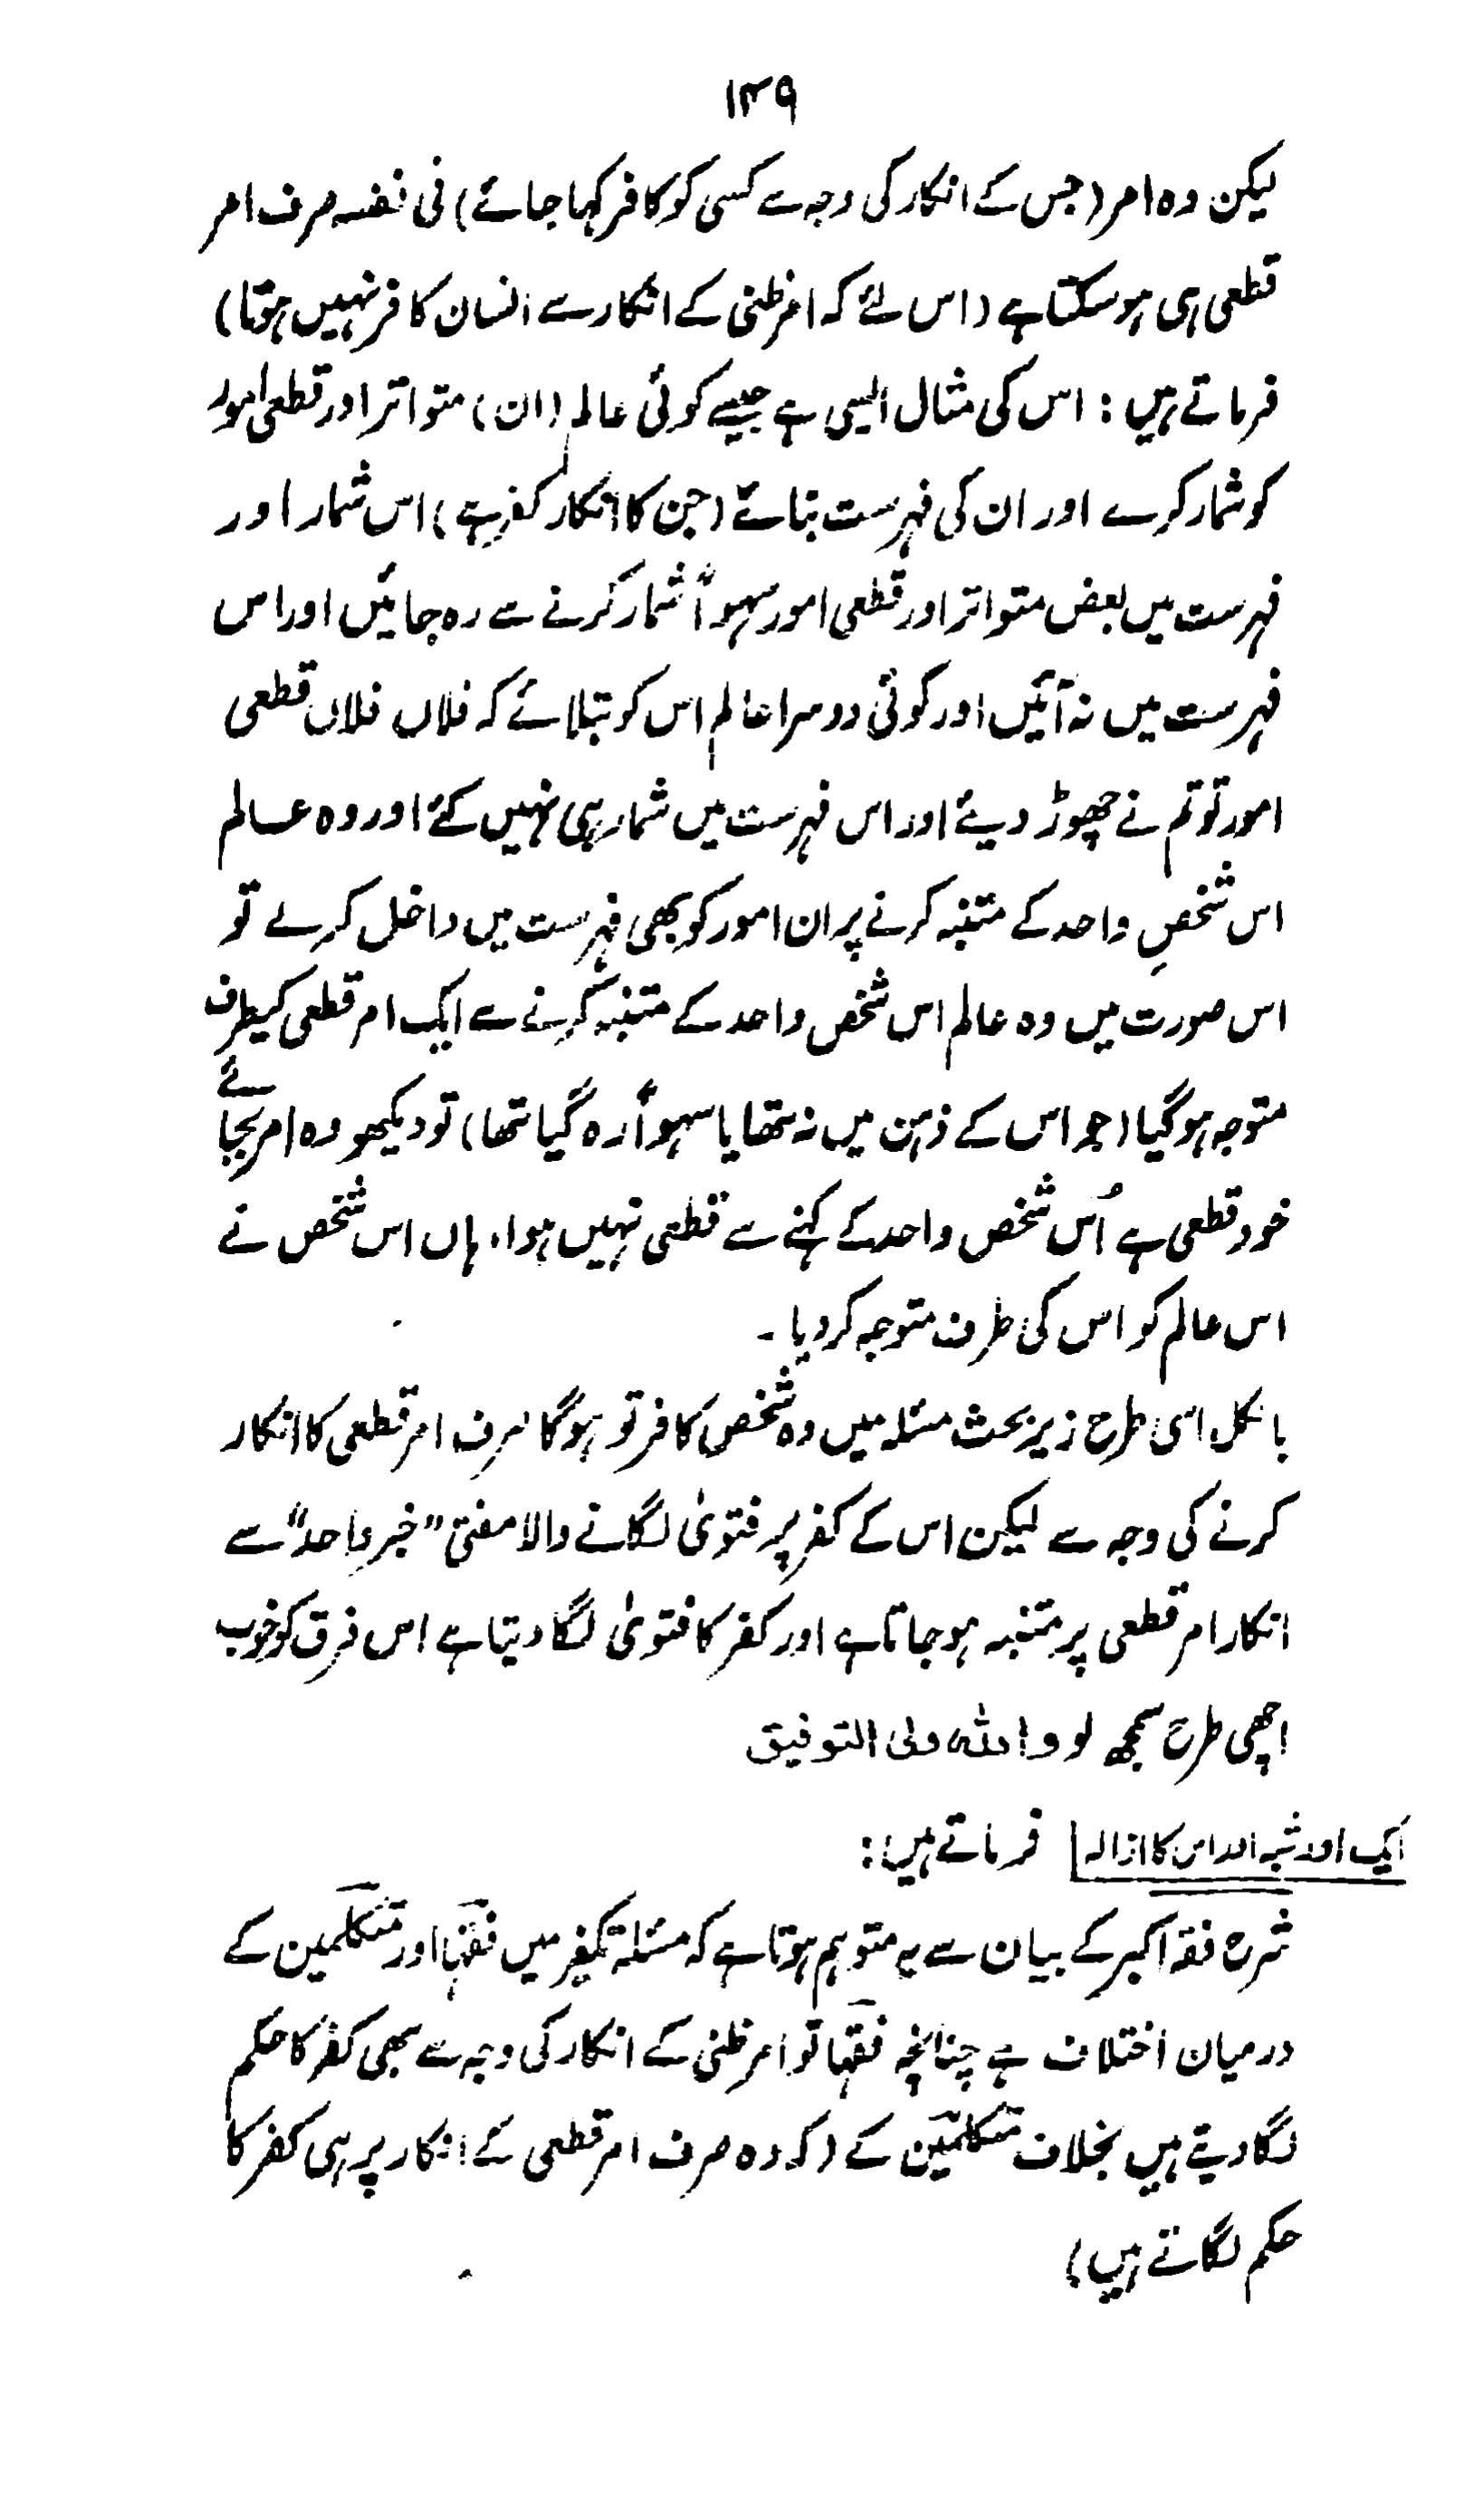 ۱۳۹
لیکن وہ امر (جس کے انکار کی وجہ سے کسی کو کافر کہا جائے) فی نفسہ صرف امر
قطعی ہی ہو سکتا ہے (اس لئے کہ امر ظنی کے انکار سے انسان کافر نہیں ہوتا)
فرماتے ہیں: اس کی مثال ایسی ہے جیسے کوئی عالم (ان) متواتر اور قطعی امور
کو شمار کرے اور ان کی فہرست بنائے (جن کا انکار کفر ہے) اس شمار اور
فہرست میں بعض متواتر اور قطعی امور سہواً شمار کرنے سے رہ جائیں اور اس
فہرست میں نہ آئیں اور کوئی دوسرا عالم اس کو بتلائے کہ فلاں فلاں قطعی
امور تو تم نے چھوڑ دیئے اور اس فہرست میں شمار ہی نہیں کئے اور وہ عالم
اس شخصِ واحد کے متنبہ کرنے پر ان امور کو بھی فہرست میں داخل کرلے تو
اس صورت میں وہ عالم اس شخص واحد کے متنبہ کرنے سے ایک امر قطعی کیطرف
متوجہ ہوگیا (جو اس کے ذہن میں نہ تھا یا سہواً رہ گیا تھا) تو دیکھو وہ امر بجائے
خود قطعی ہے اُس شخص واحد کے کہنے سے قطعی نہیں ہوا، ہاں اس شخص نے
اس عالم کو اس کی طرف متوجہ کر دیا۔
بالکل اسی طرح زیر بحث مسئلہ میں وہ شخص کافر تو ہوگا صرف امر قطعی کا انکار
کرنے کی وجہ سے لیکن اس کے کفر پر فتویٰ لگانے والا مفتی "خبر واحد" سے
انکار امر قطعی پر متنبہ ہو جاتا ہے اور کفر کا فتویٰ لگا دیتا ہے اس فرق کو خوب
اچھی طرح سمجھ لو واللہ ولی التوفیق
ایک اور شبہ اور اس کا ازالہ فرماتے ہیں:
شرح فقہ اکبر کے بیان سے یہ متوہم ہوتا ہے کہ مسئلہ تکفیر میں فقہا اور متکلمین کے
درمیان اختلاف ہے چنانچہ فقہا تو امر ظنی کے انکار کی وجہ سے بھی کفر کا حکم
لگا دیتے ہیں بخلاف متکلمین کے (کہ وہ صرف امر قطعی کے انکار پر ہی کفر کا
حکم لگاتے ہیں)